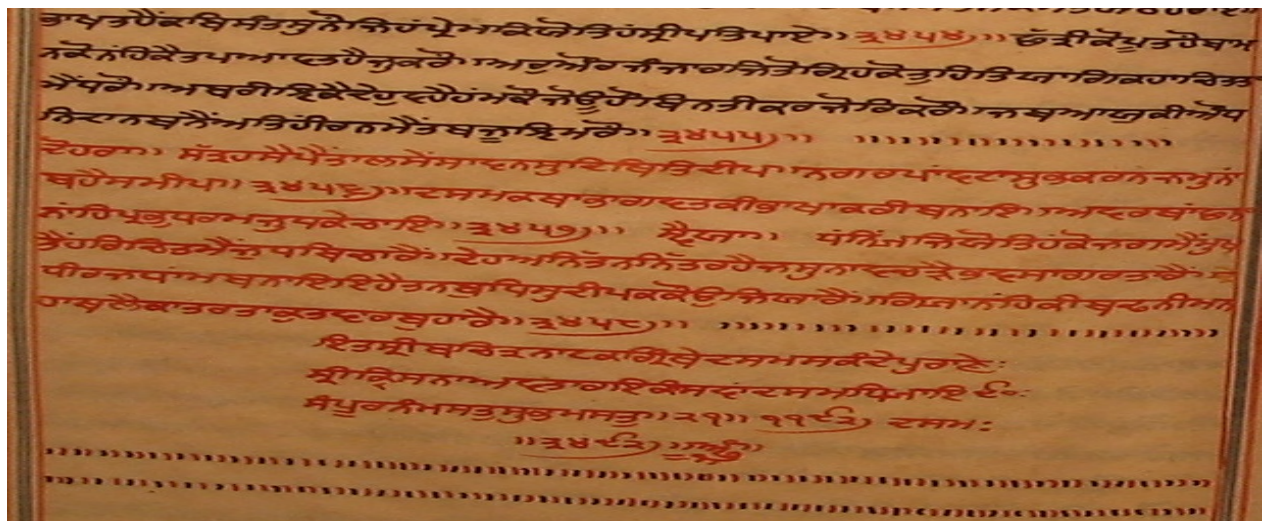 ਭਾਖਤਹੈਂਕਬਿਸੰਤਸੁਨੋਜਿਹਂਪ੍ਰੇਮਕਿਯੋਤਿਹਂਸ੍ਰੀਪਤਿਪਾਏ॥੨੪੫੪॥ ਛੱਤ੍ਰੀਕੋਪੂਤਹੌਬਾਮ
ਨਕੋਨਾਂਹਿਕੈਤਪਆਵਤਹੈਜੁਕਰੌ॥ਅਰੁਔਰਜੰਜਾਰਜਿਤੋਗ੍ਰਿਹਕੋਤੁਹਿਤਿਯਾਗਿਕਹਾਚਿਤਤਾ
ਮੈਂਧਰੌ॥ਅਬਰੀਝਿਕੈਦੇਹੁਵਹੈਹਂਮਕੌਜੋਊਹੌਂਬਿਨਤੀਕਰਜੋਰਿਕਰੌ॥ਜਬਆਯੁਕੀਔਧ
ਨਿਦਾਨਬਨੈਂਅਤਿਹੀਂਰਨਮੈਂਤਬਜੂਝਿਮਰੌ॥੨੪੫੫॥
ਦੋਹਰਾ॥ ਸੱਤ੍ਰਹਸੈਪੈਂਤਾਲਮੈਂਸਾਵਨਸੁਦਿਥਿਤਿਦੀਪ॥ਨਗਰਪਾਂਵਟਾਸੁਭਕਰਨਜਮੁਨਾਂ
ਬਹੈਸਮੀਪ॥੨੪੫੬॥ਦਸਮਕਥਾਭਾਗਵਤਕੀਭਾਖਾਕਰੀਬਨਾਇ॥ਅਵਰਬਾਂਛਨ
ਨਾਂਹਿਪ੍ਰਭੁਧਰਮਜੁਧਕੇਚਾਇ॥੨੪੫੭॥ ਸ੍ਵੈਯਾ॥ ਧੰਨਿਜੀਯੋਤਿਹਂਕੋਜਗਮੈਂਮੁਖ
ਤੈਂਹਰਿਚਿਤਮੈਂਜੁਧਬਿਚਾਰੈਂ॥ਦੇਹਅਨਿੱਤਨਨਿੱਤਰਹੈਜਸੁਨਾਵਚੜੈਭਵਸਾਗਰਤਾਰੈਂ॥
ਧੀਰਜਧਾਂਮਬਨਾਇਇਹੈਤਨਬੁਧਿਸੁਦੀਪਕਜਿਯੋਂਉਜਿਯਾਰੈ॥ਗਿਯਾਨਹਿਕੀਬਢਨੀਮਨ
ਹਾਥਲੈਕਾਤਰਤਾਕੁਤਵਾਰਬੁਹਾਰੈ॥੨੪੫੮॥
ਇਤਸ੍ਰੀਬਚਿਤ੍ਰਨਾਟਕਗ੍ਰਿੰਥੇਦਸਮਸਕੰਦੇਪੁਰਾਣੇ:
ਸ੍ਰੀਕ੍ਰਿਸਨਾਅਵਤਾਰਇਕੀਸਵਾਂਦਸਮਧਿਆਇ ੯੦:
ਸੰਪੂਰਨੰਮਸਤੁਸੁਭਮਸਤੁ॥੨੧॥੧੧੯੨॥ ਦਸਮ:
॥੨੪੯੨॥